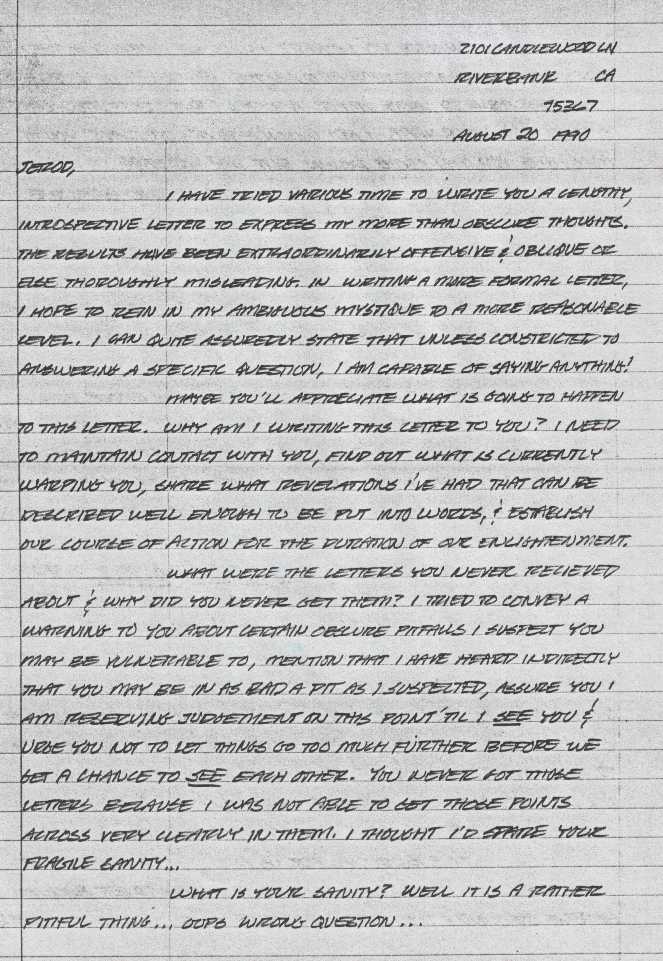 2101 CANDLEWOOD LN
RIVERBANK CA
95367
AUGUST 20 1990
JEROD,
I HAVE TRIED VARIOUS TIME TO WRITE YOU A LENGTHY,
INTROSPECTIVE LETTER TO EXPRESS MY MORE THAN OBSCURE THOUGHTS.
THE RESULTS HAVE BEEN EXTRAORDINARILY OFFENSIVE & OBLIQUE OR
ELSE THOROUGHLY MISLEADING. IN WRITING A MORE FORMAL LETTER,
I HOPE TO REIN IN MY AMBIGUOUS MYSTIQUE TO A MORE REASONABLE
LEVEL. I CAN QUITE ASSUREDLY STATE THAT UNLESS CONSTRICTED TO
ANSWERING A SPECIFIC QUESTION, I AM CAPABLE OF SAYING ANYTHING!
MAYBE YOU'LL APPRECIATE WHAT IS GOING TO HAPPEN
TO THIS LETTER. WHY AM I WRITING THIS LETTER TO YOU? I NEED
TO MAINTAIN CONTACT WITH YOU, FIND OUT WHAT IS CURRENTLY
WARPING YOU, SHARE WHAT REVELATIONS I'VE HAD THAT CAN BE
DESCRIBED WELL ENOUGH TO BE PUT INTO WORDS, & ESTABLISH
OUR COURSE OF ACTION FOR THE DURATION OF OUR ENLIGHTENMENT.
WHAT WERE THE LETTERS YOU NEVER RECIEVED
ABOUT & WHY DID YOU NEVER GET THEM? I TRIED TO CONVEY A
WARNING TO YOU ABOUT CERTAIN OBSCURE PITFALLS I SUSPECT YOU
MAY BE VULNERABLE TO, MENTION THAT I HAVE HEARD INDIRECTLY
THAT YOU MAY BE IN AS BAD A PIT AS I SUSPECTED, ASSURE YOU I
AM RESERVING JUDGEMENT ON THIS POINT 'TIL I SEE YOU &
URGE YOU NOT TO LET THINGS GO TOO MUCH FURTHER BEFORE WE
GET A CHANCE TO SEE EACH OTHER. YOU NEVER GOT THOSE
LETTERS BECAUSE I WAS NOT ABLE TO GET THOSE POINTS
ACROSS VERY CLEARLY IN THEM. I THOUGHT I'D SPARE YOUR
FRAGILE SANITY...
WHAT IS YOUR SANITY? WELL IT IS A RATHER
PITIFUL THING... OOPS WRONG QUESTION...